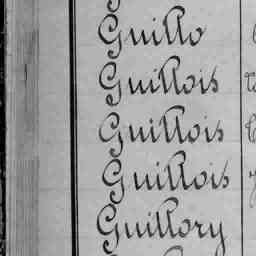 Guillo
Guillois
Guillois
Guillois
Guillory